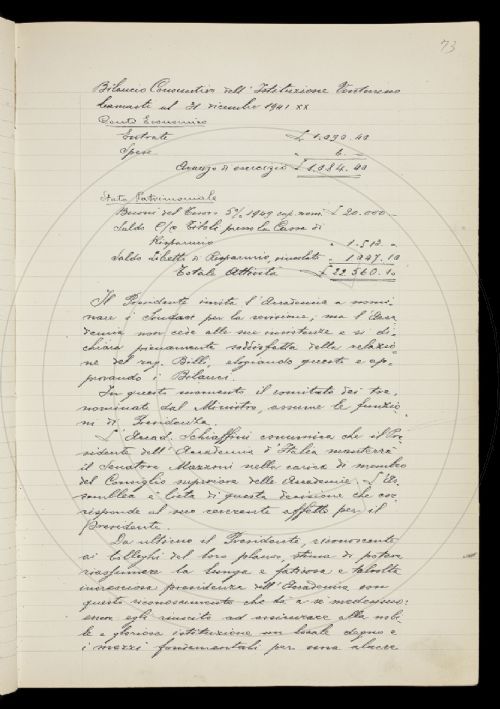 73
Bilancio Consuntivo dell'Istituzione
al 31 dicembre 1941 XX
Conto Economico
Entrate £ 1.090.40
Spese " 6. —
Avanzo di esercizio £ 1.084.40
Stato Patrimoniale
Buoni del Tesoro 5% 1949 cap. nom. £ 20.000 —
Saldo C/c Titoli presso la Cassa di
Risparmio " 1.513 "
Saldo Libretto di Risparmio, vincolato " 1.047.10
Totale Attività £ 22.560.10
Il Presidente invita l'Accademia a nomi-
nare i Sindaci per la revisione, ma l'Acca
demia non cede alle sue insistenze e si di-
chiara pienamente soddisfatta della relazio
ne del rag. Billo, elogiando questo e ap-
provando i Bilanci.
In questo momento il comitato dei tre,
nominato dal Ministro, assume le funzio
ni di Presidenza.
L'Accad. Schiaffini comunica che il Pre
sidente dell'Accademia d'Italia manterrà
il Senatore Mazzoni nella carica di membro
del Consiglio superiore delle Accademie. L'As
semblea è lieta di questa decisione che cor
risponde al suo costante affetto per il
Presidente.
Da ultimo il Presidente, riconoscente
ai Colleghi del loro plauso, stima di potere
riassumere la lunga e faticosa e talvolta
presidenza dell'Accademia con
questo riconoscimento che dà a sè medesimo:
esser egli riuscito ad assicurare alla nobi
le e gloriosa istituzione un locale degno e
i mezzi fondamentali per una alacre